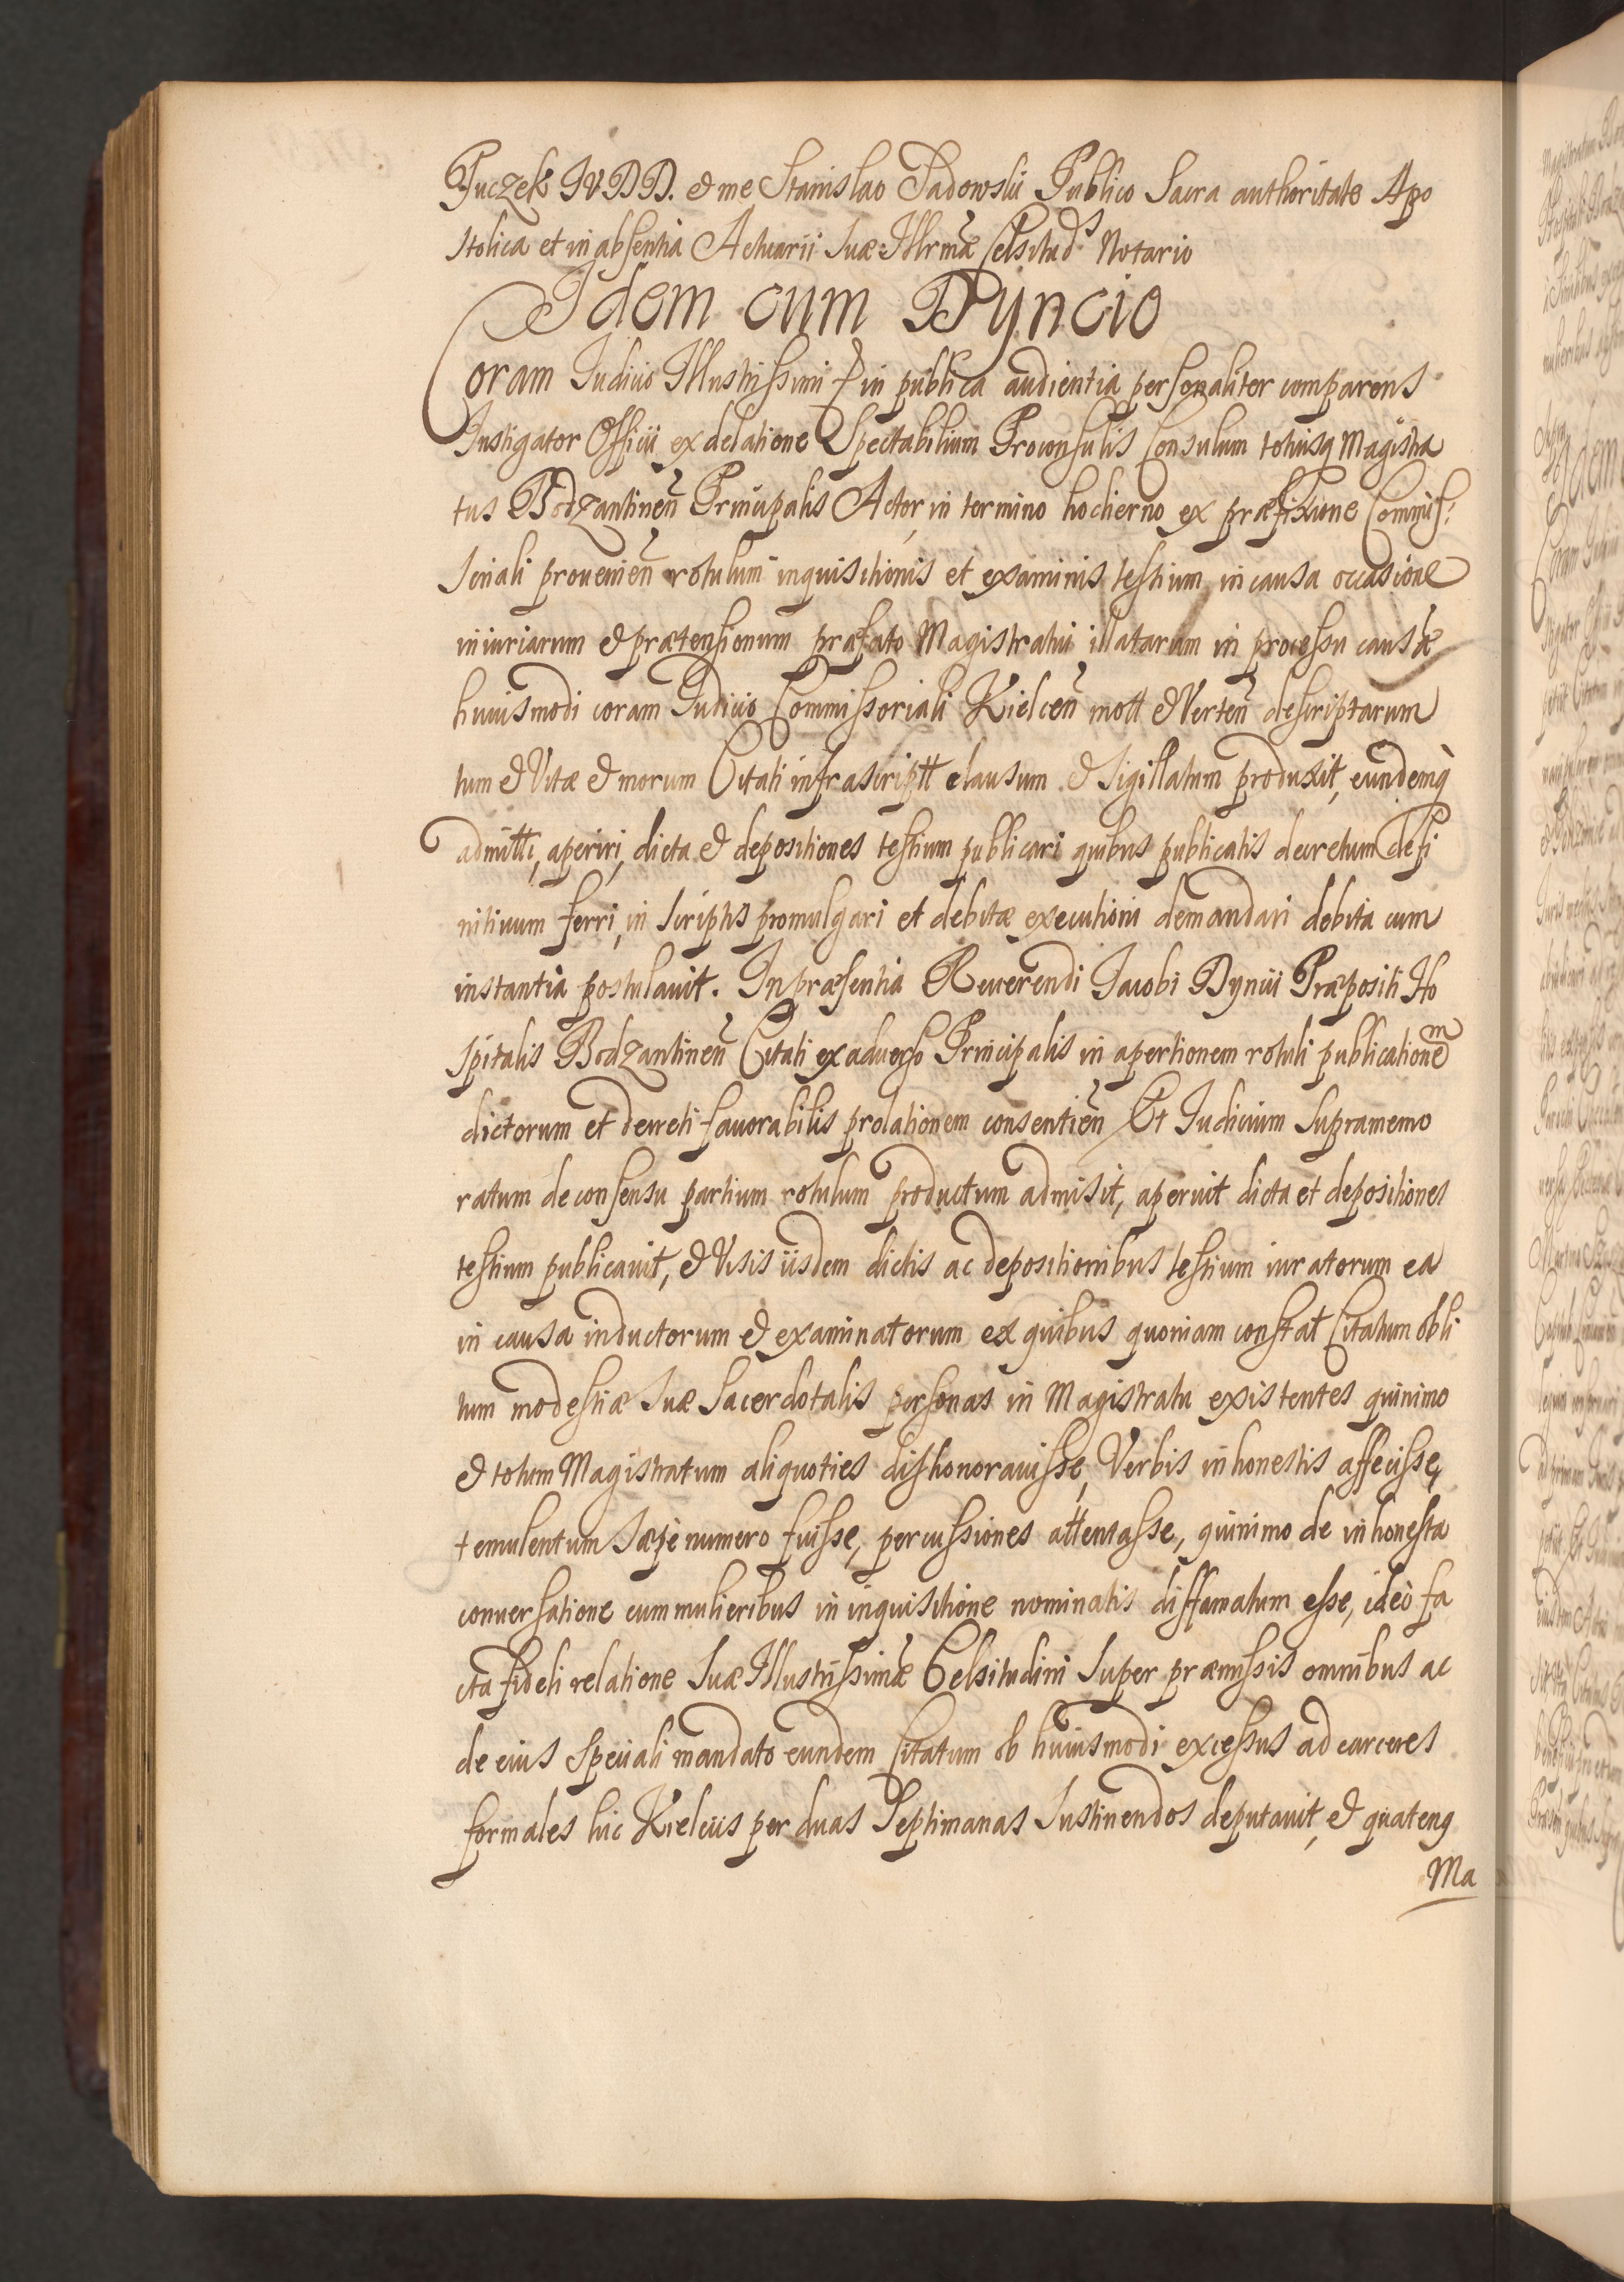 Puczek IVDD. & me Stanislao Sadowski Publico Sacra authoritate Apo
stolica et in absentia Actuarii Suæ Illrmæ Celsitud^s Notario
Idem cum Dyncio
Coram Judicio Illustrissimi & in publica audientia personaliter comparens
Instigator Officii ex delatione Spectabilium Proconsulis Consulum totiusq Magistra
tus Bodzantineñ Principalis Actor, in termino hodierno ex præfixione Commis:
soriali provenieñ rotulum inquisitionis et examinis testium in causa occasione
iniuriarum & prætensionum præfato Magistratui illatarum in processu causæ
huiusmodi coram Judicio Commissoriali Kielceñ mott & Verteñ descriptarum
tum & Vitæ & morum Citati infrascriptt clausum & Sigillatum produxit, eundemq̀
admitti, aperiri, dicta & depositiones testium publicari quibus publicatis decretum defi
nitiuum ferri, in scriptis promulgari et debitæ executioni demandari debita cum
instantia postulauit. In præsentia Reuerendi Jacobi Dyncii Præpositi Ho
spitalis Bodzantineñ Citati ex aduerso Principalis in apertionem rotuli publicatione^m
dictorum et decreti fauorabilis prolationem consentieñ Et Iudicium Supramemo
ratum de consensu partium rotulum productum admisit, aperuit dicta et depositiones
testium publicauit, & Visis iisdem dictis ac depositionibus testium iuratorum ea
in causa inductorum & examinatorum ex quibus quoniam constat Citatum obli
tum modestiæ suæ Sacerdotalis personas in Magistratu existentes quinimo
& totum Magistratum aliquoties dishonorauisse, Verbis inhonestis affecisse,
temulentum sæpè numero fuisse, percussiones attentasse, quinimo de inhonesta
conuersatione cum mulieribus in inquisitione nominatis diffamatum esse, ideò fa
cta fideli relatione Suæ Illustrissimæ Celsitudini Super præmissis omnibus ac
de eius Speciali mandato eundem Citatum ob huiusmodi excessus ad carceres
formales hic Kielciis per duas Septimanas Sustinendos deputauit, & quatenq
Ma